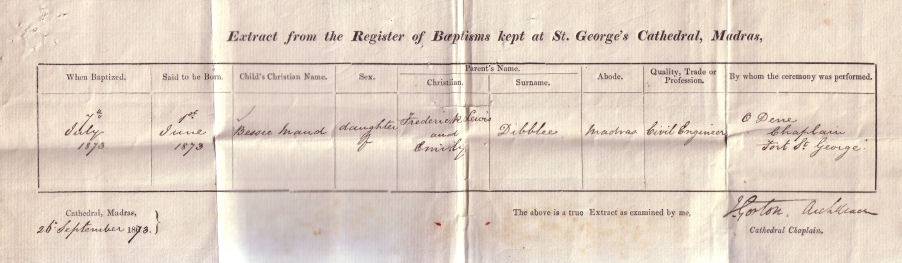 Extract from the Register of Baptisms kept at St. George's Cathedral, Madras,
When Baptized.
Said to be Born.
Child's Christian Name.
Sex.
Parent's Name.
Christian.
Surname.
Abode.
Quality, Trade or
Profession.
By whom the ceremony was performed.
7th
July
1873
1st
June
1873
Bessie Maud
daughter
of
Frederick Lewis
and
Emily
Dibblee
Madras
Civil Engineer
O Dene
Chaplain
Fort St George
Cathedral, Madras,
26 September 1873.
The above is a true Extract as examined by me.
Gorton, Archdeacon
Cathedral Chaplain.